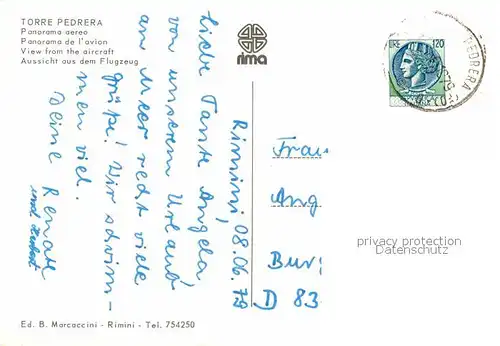 TORRE PEDRERA
Panorama aereo
Panorama de l'avion
View from the aircraft
Aussicht aus dem Flugzeug
rima
LIRE 120
PEDRERA
Rimini, 08.06.79
Liebe Tante Angela,
von unserem Urlaub
am Meer recht viele
Grüße! Wir schwim-
men viel.
Deine Renate
und Hubert
Frau
Ang
Bur
D 83
privacy protection
Datenschutz
Ed. B. Marcaccini - Rimini - Tel. 754250